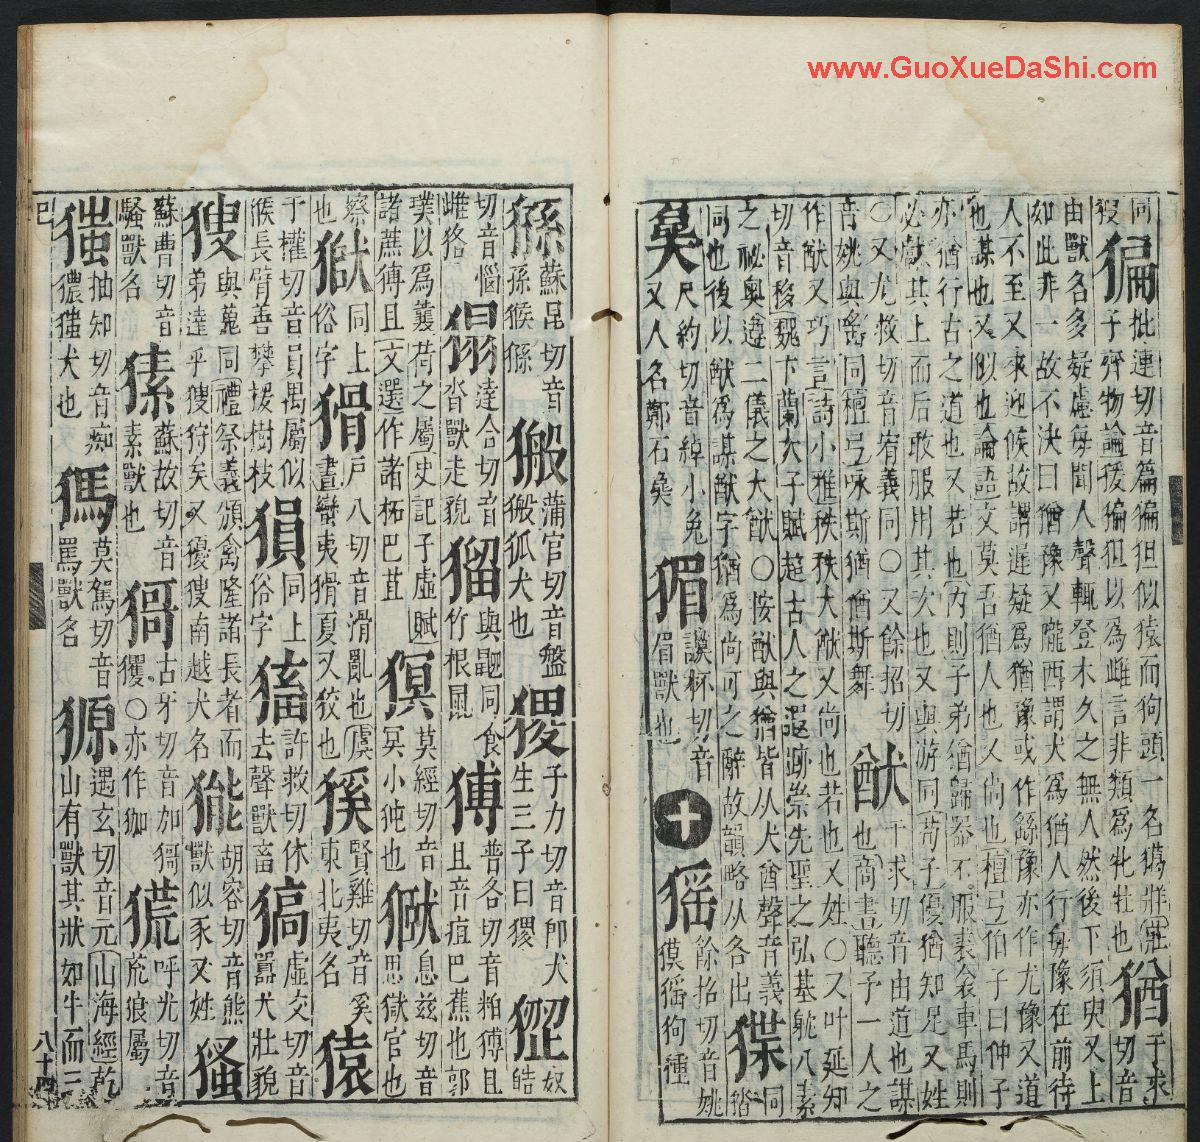 同 猵 批連切音篇猵狙似猿而狗頭一名獦牂莊
子齊物論猨猵狙以爲雌言非類爲牝牡也 猶 于求切音
由獸名多疑慮每聞人聲輒登木久之無人然後下須臾又上
如此非一故不決曰猶豫又隴西謂犬爲猶人行每豫在前待
人不至又來迎候故謂遲疑爲猶豫或作䋣豫亦作尤豫又道
也謀也又似也論語文莫吾猶人也又尚也檀弓伯子曰仲子
亦猶行古之道也又若也內則子弟猶歸器不服裘衾車馬則
必獻其上而后敢服用其次也又與游同荀子優猶知足又姓
○又尤救切音宥義同○又餘招切
音姚與謠同檀弓咏斯猶猶斯舞 猷 于求切音由道也謀
也商書聽予一人之
作猷又巧言詩小雅秩秩大猷又尚也若也又姓○又叶延知
切音移魏卞蘭太子賦超古人之遐跡崇先聖之弘基躭八素
之祕奧遵二儀之大猷○按猷與猶皆从犬酋聲音義
同也後以猷爲謀猷字猶爲尚可之辭故韻略从各出 㹹 同
㺚 尺約切音綽小兔
又人名鄭石㚖 猸 謨杯切音
眉獸也 十 猺 餘招切音姚
獏猺狗種
猻 蘇昆切音
孫猴猻 搬 蒲官切音盤
搬狐犬也 㮨 子力切音卽犬
生三子曰㮨 㹎 奴
皓
切音惱
雌狢 㺚 達合切音
沓獸走貌 㺠 與鼦同食
竹根鼠 猼 普各切音粕猼且
且音疽巴蕉也郭
璞以爲蘘荷之屬史記子虛賦
諸蔗猼且文選作諸柘巴苴 猽 莫經切音
冥小㹠也 㺇 息茲切音
思獄官也
察
也 獄 同上
俗字 猾 戶八切音滑亂也虞
書蠻夷猾夏又狡也 豯 賢雞切音奚
東北夷名 猿
于權切音員禺屬似
猴長臂善攀援樹枝 㺀 同上
俗字 㹌 許救切休
去聲獸畜 㺒 虛交切音
嚻犬壯貌
獀 與蒐同禮祭義頒禽隆諸長者而
弟達乎獀狩矣又獶獀南越犬名 㺎 胡容切音熊
獸似豕又姓 㺐
蘇曹切音
騷獸名 㺁 蘇故切音
素獸也 㺕 古牙切音加㺕
玃○亦作㹢 㹰 呼光切音
㡃狼屬
㺈 抽知切音痴
獹㺈犬也 獁 莫駕切音
罵獸名 獂 遇玄切音元山海經乾
山有獸其狀如牛而三
八十四
www.GuoXueDaShi.com